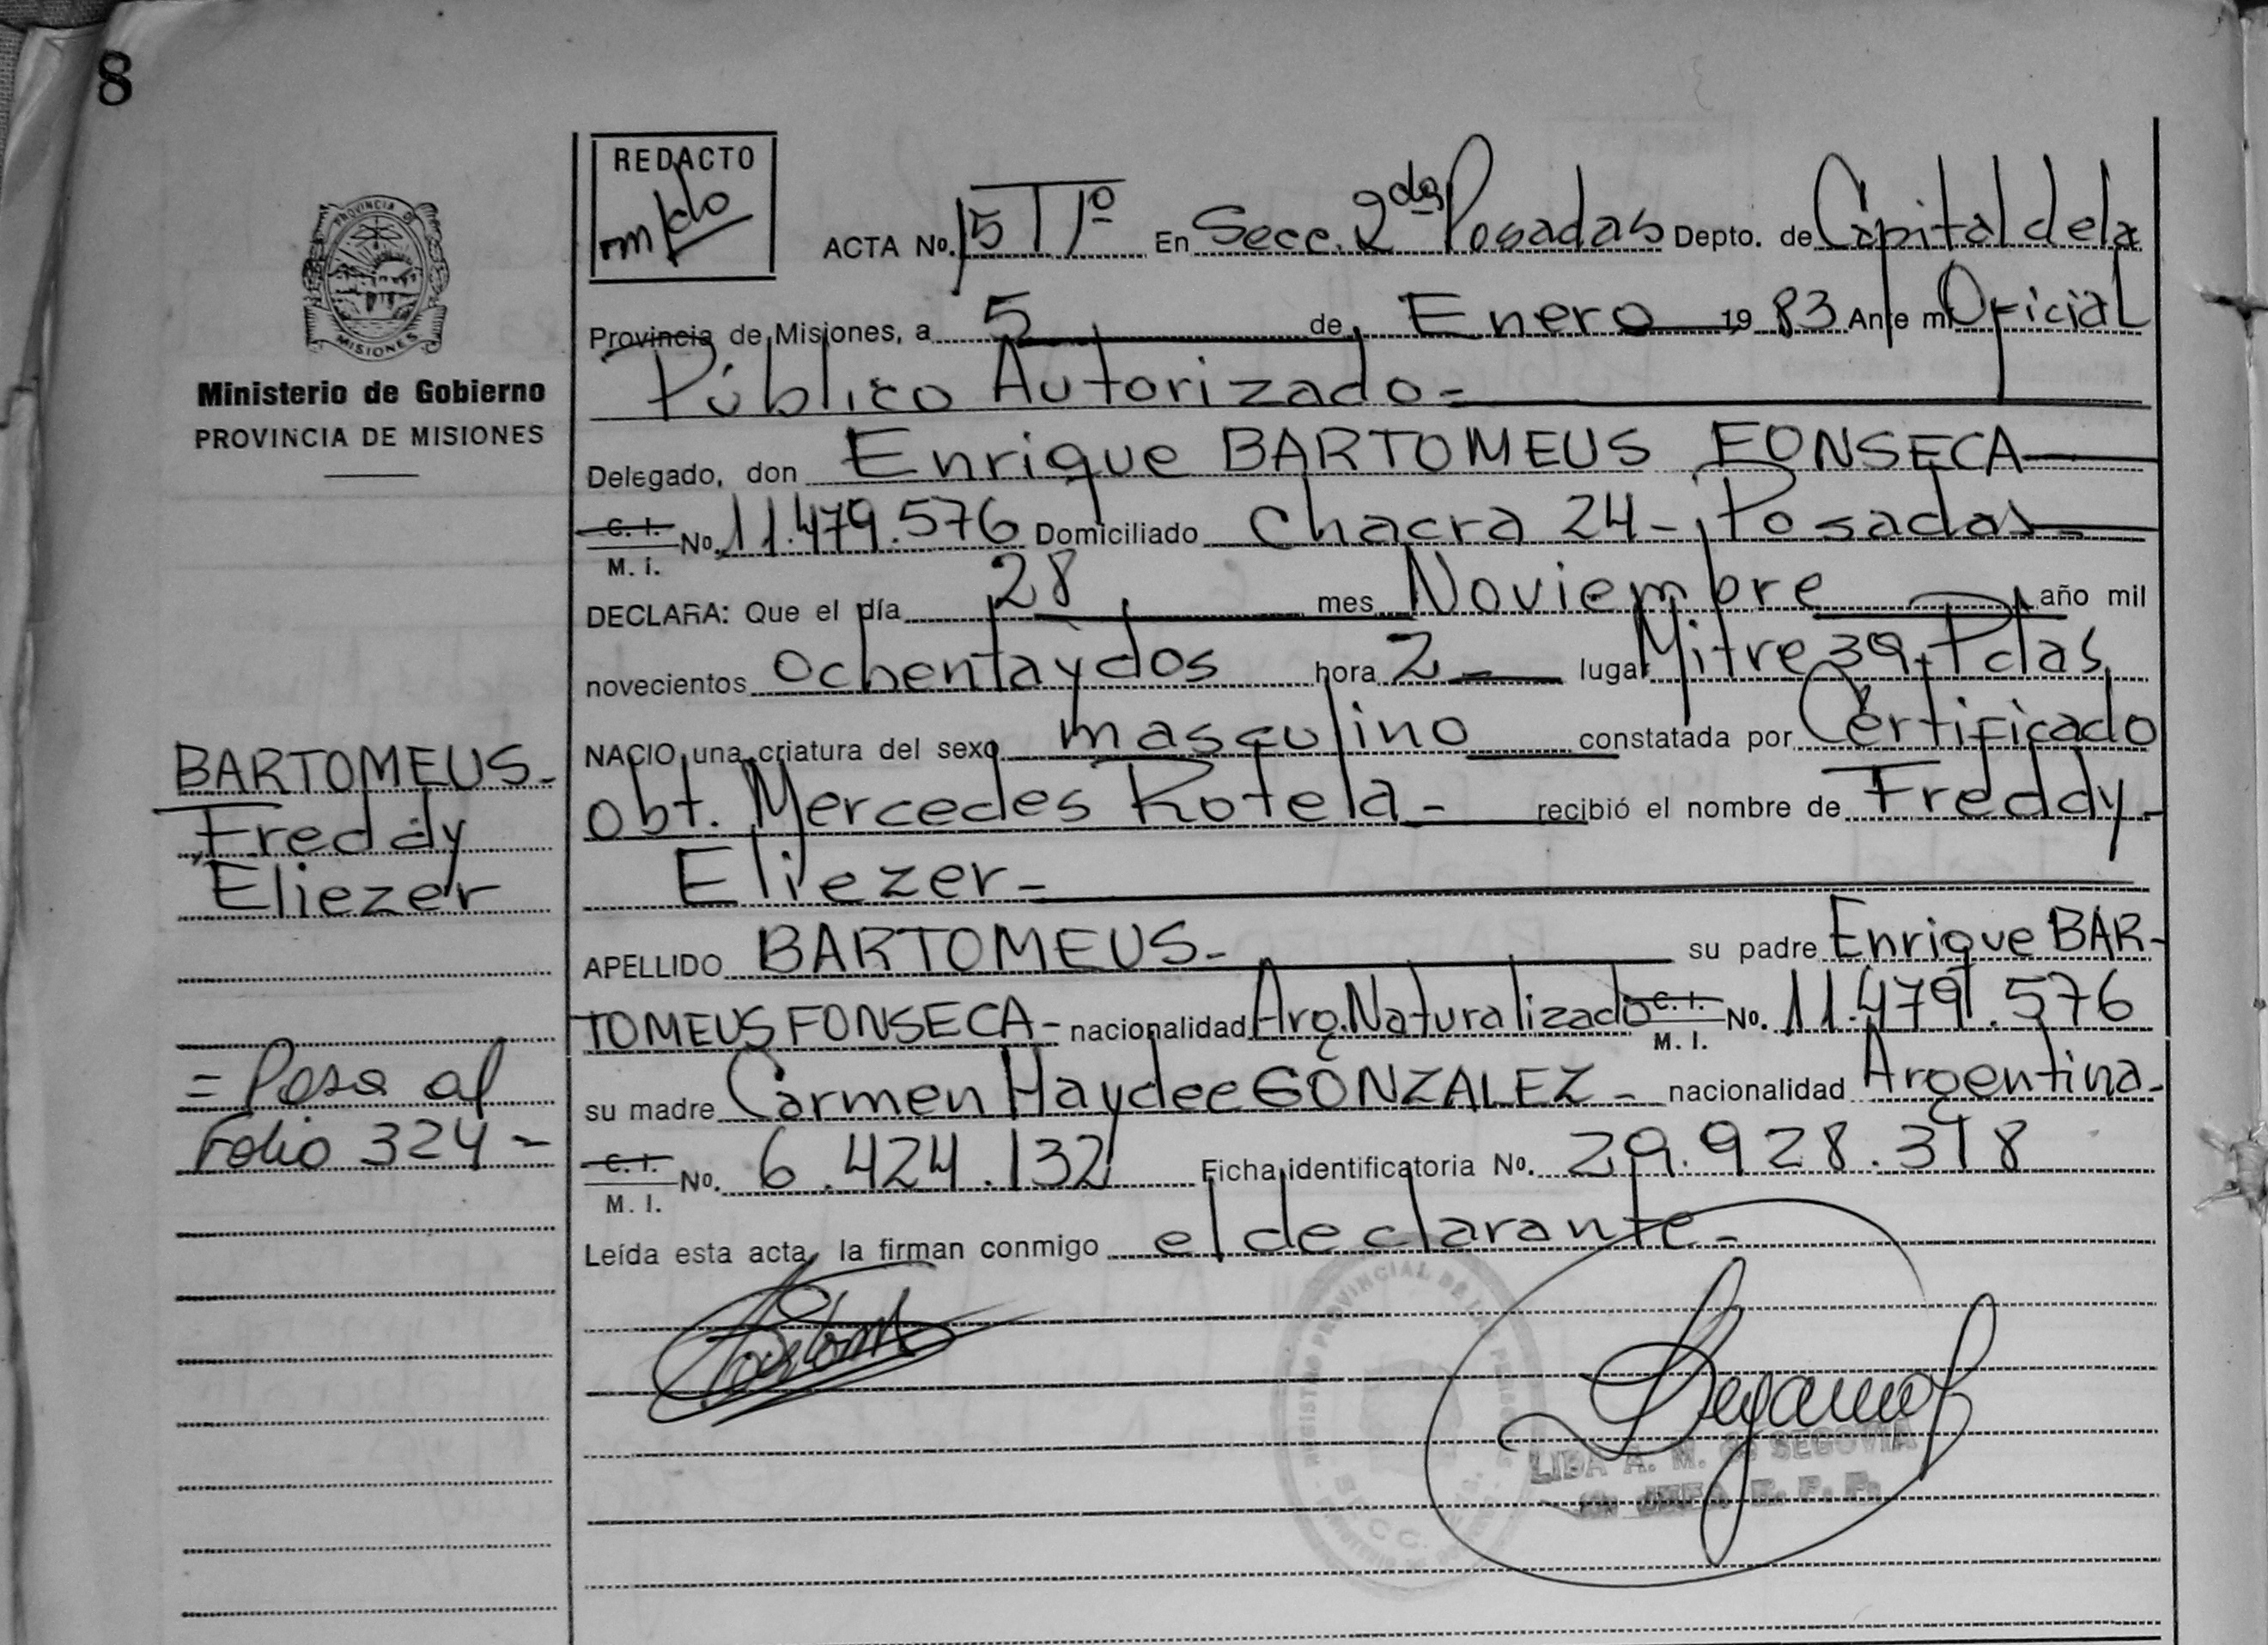 8
REDACTO
PROVINCIA DE
MISIONES
Ministerio de Gobierno
PROVINCIA DE MISIONES
ACTA No. 15 Tº En Secc. 2da Posadas Depto. de Capital de la
Provincia de Misiones, a 5 de Enero 19 83 Ante mi Oficial
Público Autorizado=
Delegado, don Enrique BARTOMEUS FONSECA
C. I. No. 11.479.576 Domiciliado Chacra 24 - Posadas
M. I.
DECLARA: Que el día 28 mes Noviembre año mil
novecientos ochenta y dos hora 2 lugar Mitre 39 - Pdas
NACIO una criatura del sexo masculino constatada por Certificado
obt. Mercedes Rotela - recibió el nombre de Freddy -
Eliezer -
APELLIDO BARTOMEUS - su padre Enrique BAR-
TOMEUS FONSECA - nacionalidad Arg. Naturalizado C. I. No. 11.479.576
M. I.
su madre Carmen Haydee GONZALEZ - nacionalidad Argentina -
C. I. No. 6.424.132 Ficha identificatoria No. 29.928.318
M. I.
Leída esta acta, la firman conmigo el declarante -
BARTOMEUS -
Freddy
Eliezer
= Pasa al
Folio 324 =
REGISTRO PROVINCIAL DE
LIDA A. M. de SEGOVIA
JEFA R. P. P.